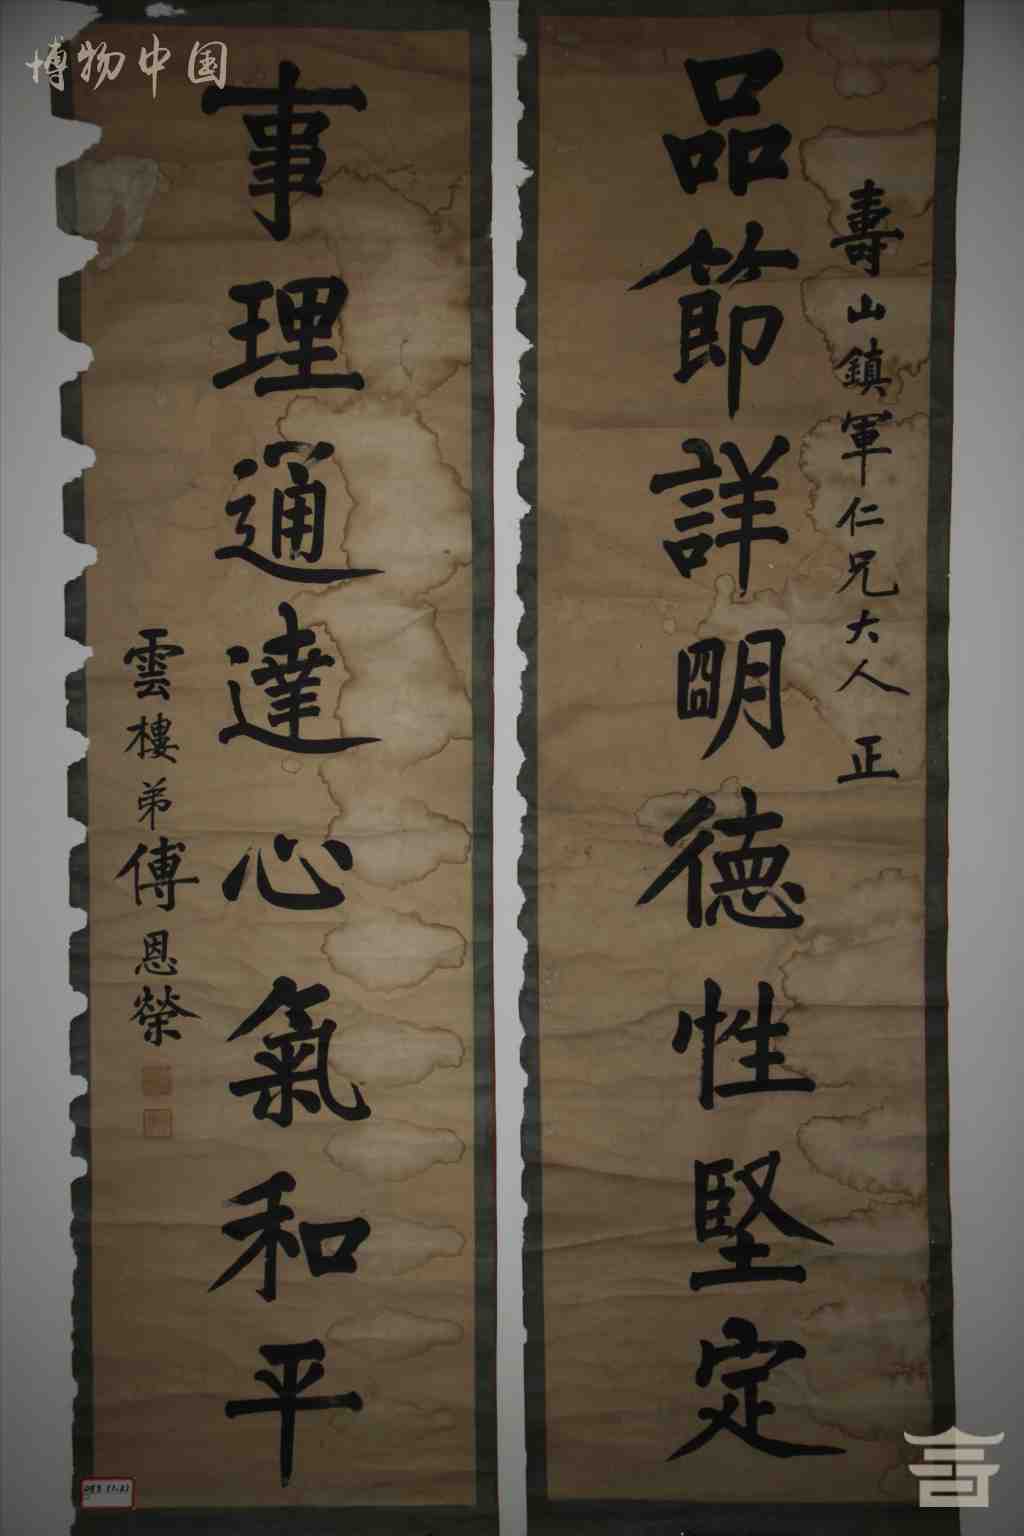 博物中国
壽山鎮軍仁兄大人正
品節詳明德性堅定
事理通達心氣和平
雲樓弟傅恩榮